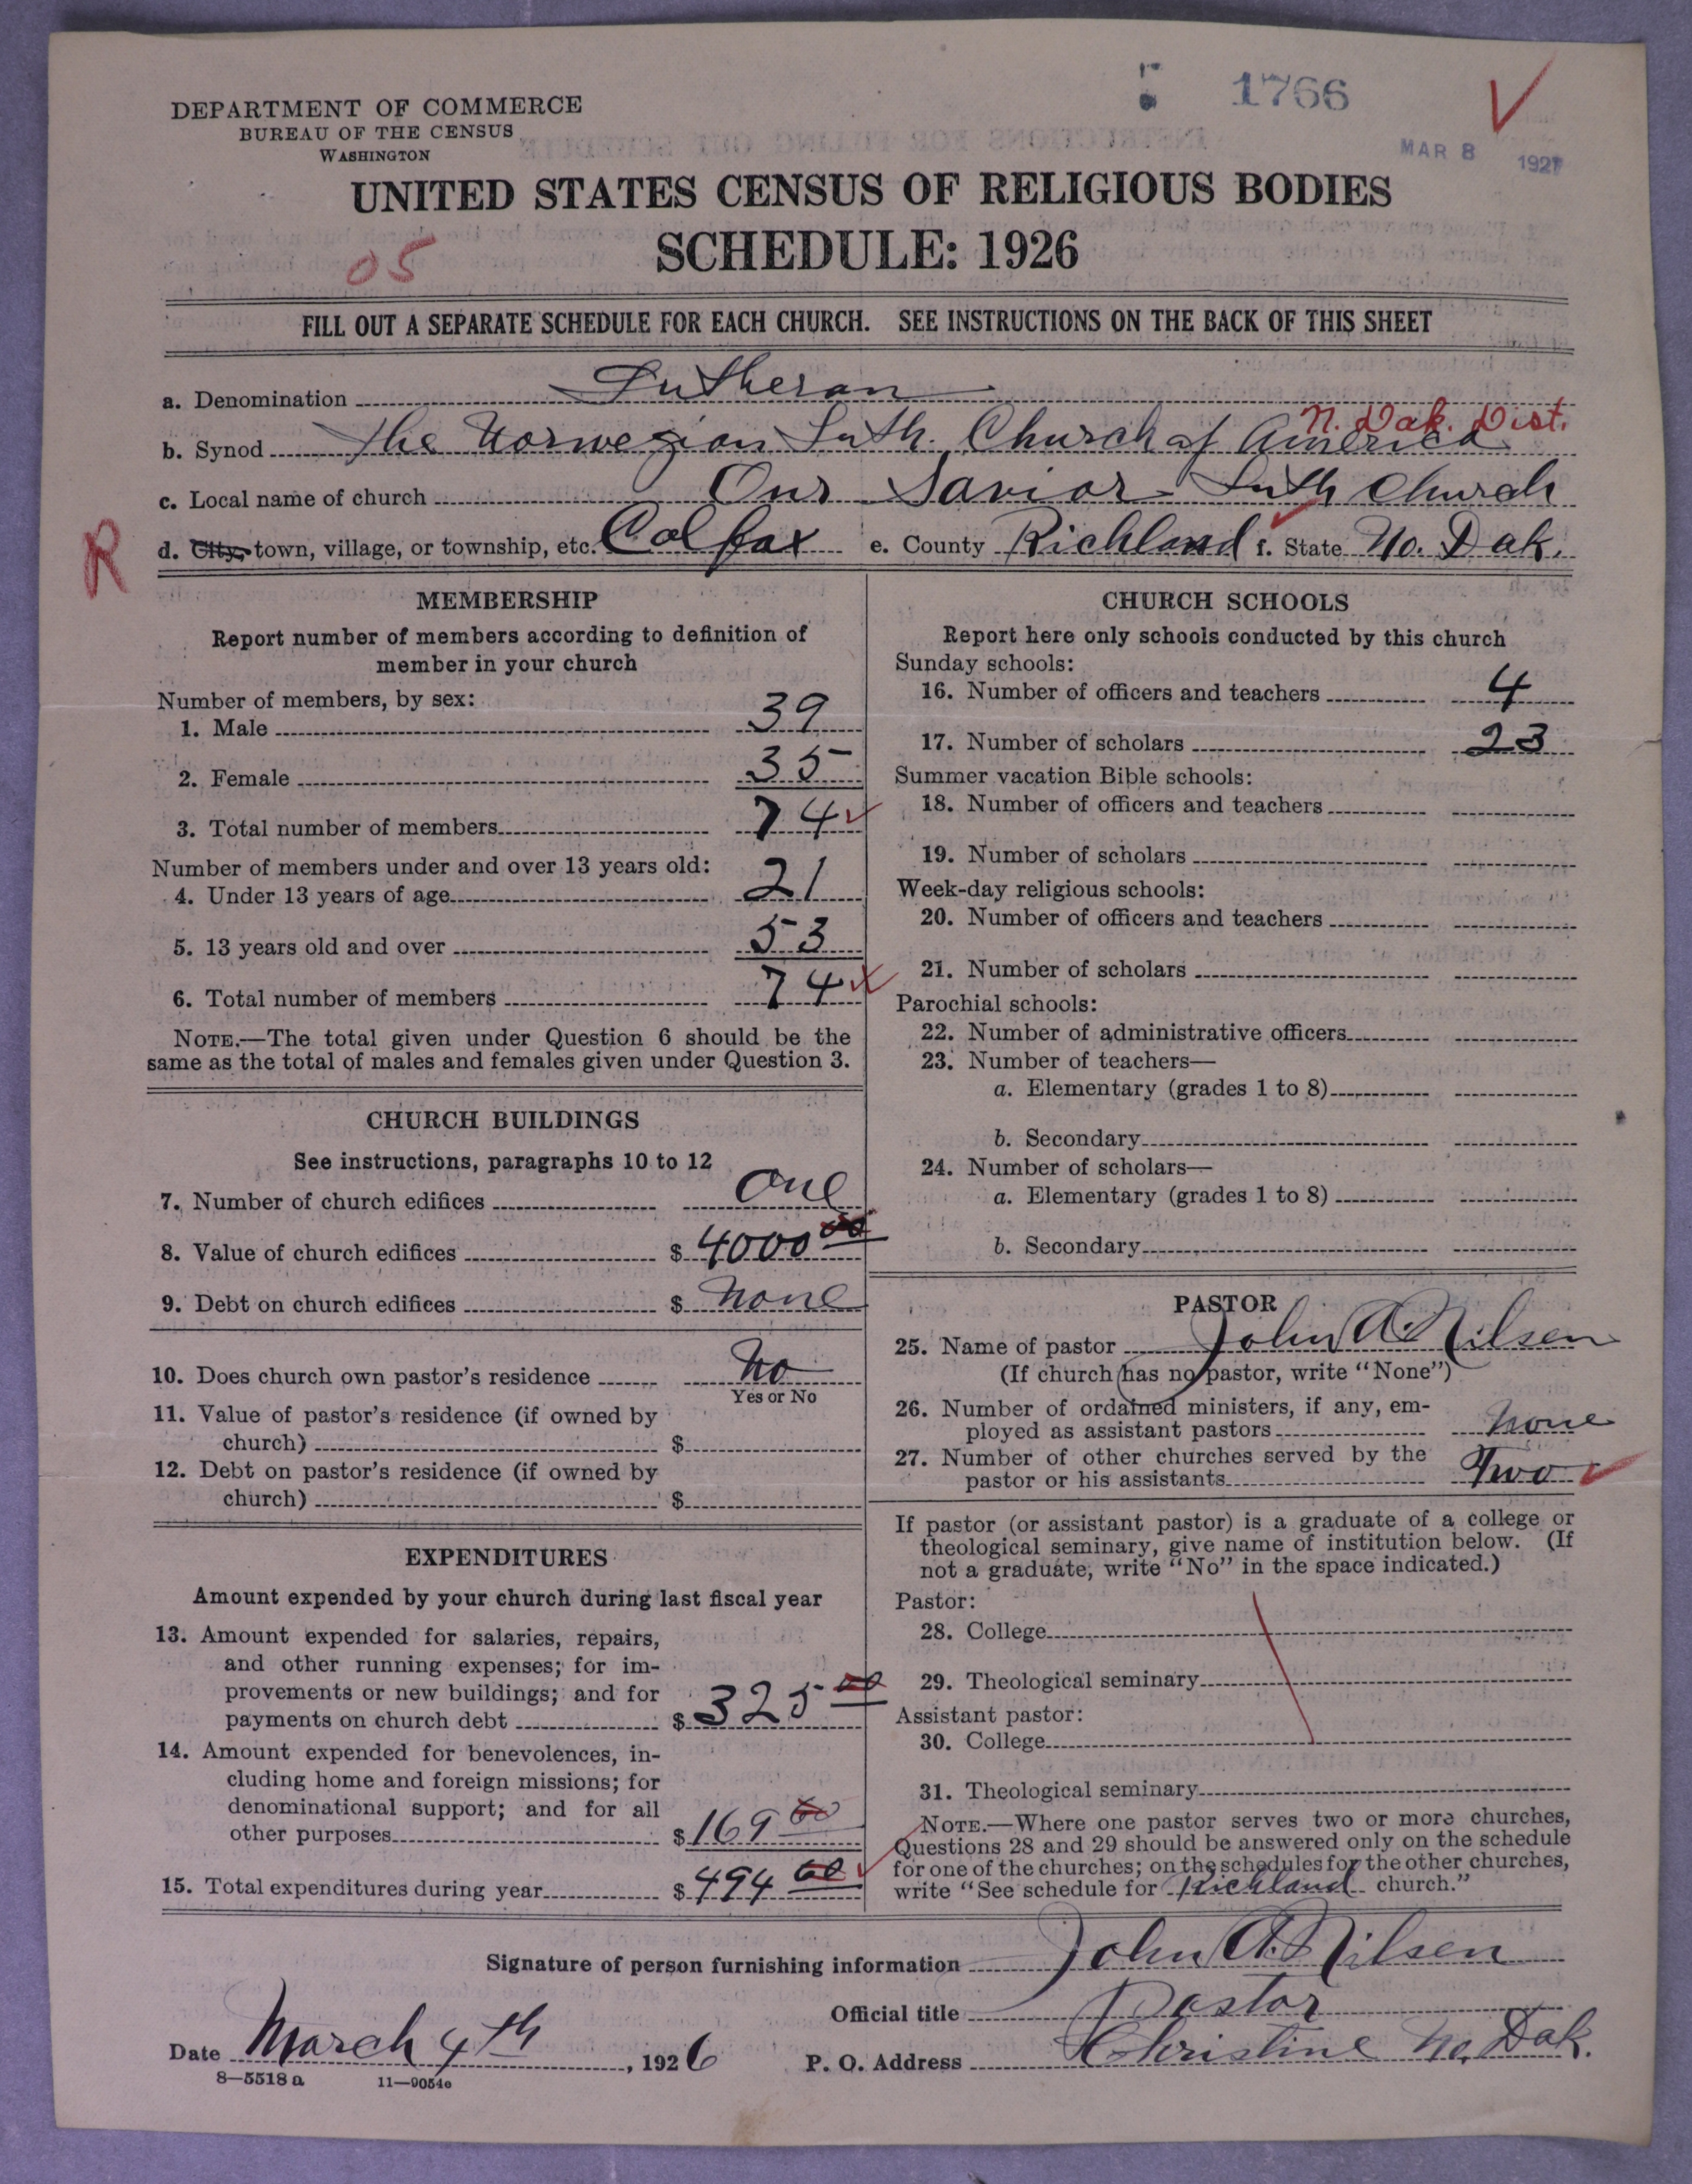 1766
DEPARTMENT OF COMMERCE
BUREAU OF THE CENSUS
WASHINGTON
MAR 8 1927
UNITED STATES CENSUS OF RELIGIOUS BODIES
SCHEDULE: 1926
05
FILL OUT A SEPARATE SCHEDULE FOR EACH CHURCH. SEE INSTRUCTIONS ON THE BACK OF THIS SHEET
a. Denomination Lutheran
N. Dak. Dist.
b. Synod The Norwegian Luth. Church of America
c. Local name of church Our Savior Luth Church
R
d. City, town, village, or township, etc. Colfax e. County Richland f. State No. Dak.
MEMBERSHIP
Report number of members according to definition of
member in your church
Number of members, by sex:
1. Male 39
2. Female 35
3. Total number of members 74
Number of members under and over 13 years old:
4. Under 13 years of age 21
5. 13 years old and over 53
6. Total number of members 74
NOTE.—The total given under Question 6 should be the
same as the total of males and females given under Question 3.
CHURCH BUILDINGS
See instructions, paragraphs 10 to 12
7. Number of church edifices One
8. Value of church edifices $ 4000 00
9. Debt on church edifices $ None
10. Does church own pastor's residence No
Yes or No
11. Value of pastor's residence (if owned by
church) $
12. Debt on pastor's residence (if owned by
church) $
EXPENDITURES
Amount expended by your church during last fiscal year
13. Amount expended for salaries, repairs,
and other running expenses; for im-
provements or new buildings; and for
payments on church debt $ 325 00
14. Amount expended for benevolences, in-
cluding home and foreign missions; for
denominational support; and for all
other purposes $ 169 60
15. Total expenditures during year $ 494 60
CHURCH SCHOOLS
Report here only schools conducted by this church
Sunday schools:
16. Number of officers and teachers 4
17. Number of scholars 23
Summer vacation Bible schools:
18. Number of officers and teachers
19. Number of scholars
Week-day religious schools:
20. Number of officers and teachers
21. Number of scholars
Parochial schools:
22. Number of administrative officers
23. Number of teachers—
a. Elementary (grades 1 to 8)
b. Secondary
24. Number of scholars—
a. Elementary (grades 1 to 8)
b. Secondary
PASTOR
25. Name of pastor John A. Nilsen
(If church has no pastor, write "None")
26. Number of ordained ministers, if any, em-
ployed as assistant pastors None
27. Number of other churches served by the
pastor or his assistants Two
If pastor (or assistant pastor) is a graduate of a college or
theological seminary, give name of institution below. (If
not a graduate, write "No" in the space indicated.)
Pastor:
28. College
29. Theological seminary
Assistant pastor:
30. College
31. Theological seminary
NOTE.—Where one pastor serves two or more churches,
Questions 28 and 29 should be answered only on the schedule
for one of the churches; on the schedules for the other churches,
write "See schedule for Richland church."
Signature of person furnishing information John A. Nilsen
Official title Pastor
Date March 4th, 1926 P. O. Address Christine No. Dak.
8—5518 a 11—9054c